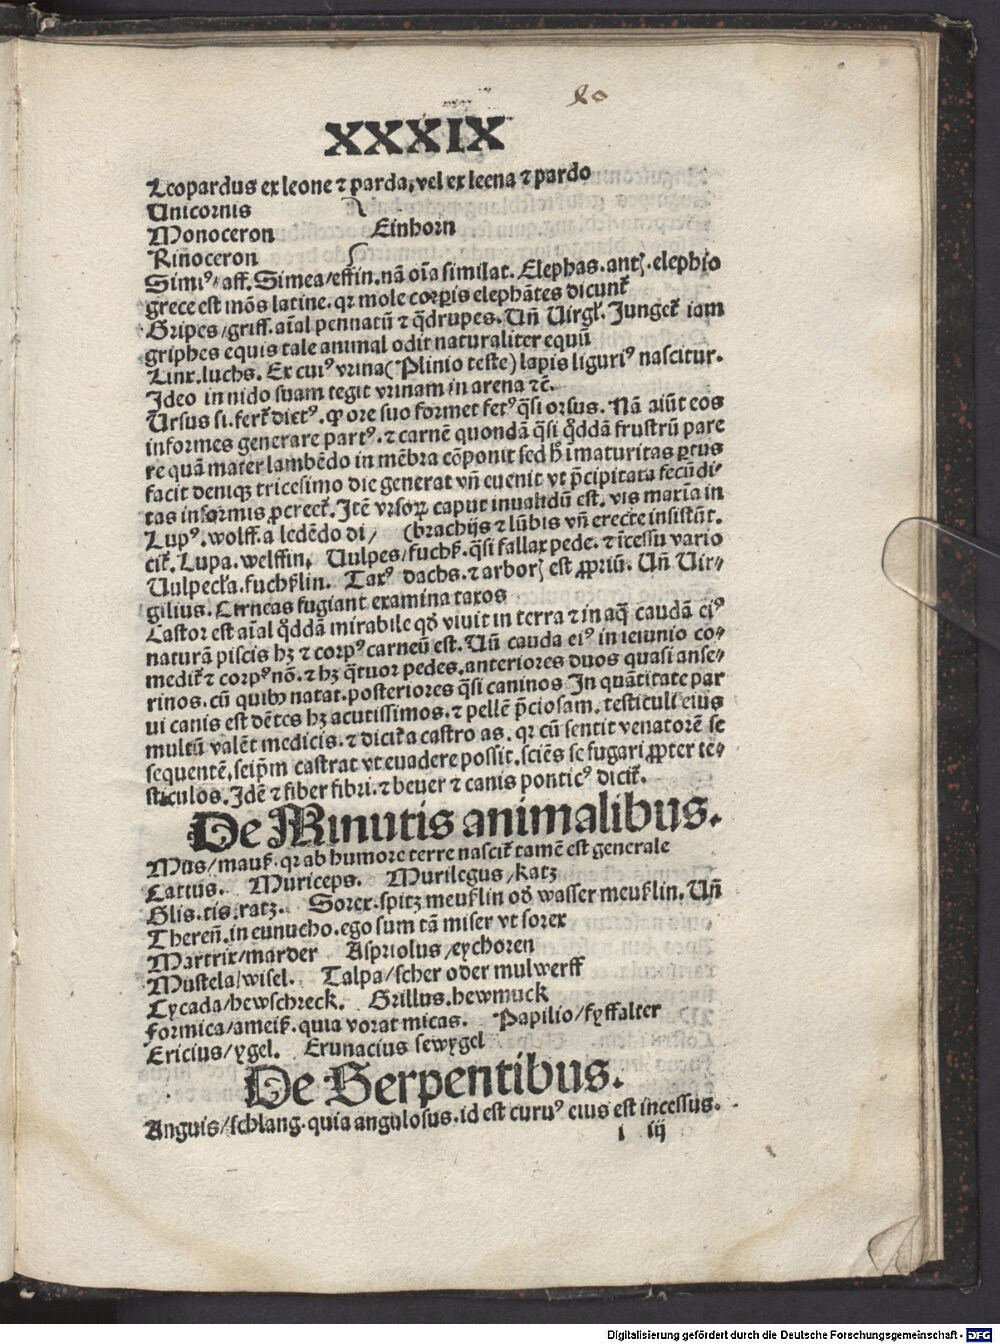 XXXIX
Leopardus ex leone ⁊ parda, vel ex leena ⁊ pardo
Unicornis
Monoceron Einhorn
Rinoceron
Simiꝰ/aff. Simea/effin. nã oĩa similat. Elephas. antꝭ. elephio
grece est mõs latine. qr mole corꝑis elephãtes dicunt᷑
Gripes/griff. aĩal pennatũ ⁊ q̃drupes. Uñ Virgł. Junget᷑ iam
griphes equis tale animal odit naturaliter equũ
Linx. luchs. Ex cuiꝰ vrina (Plinio teste) lapis liguriꝰ nascitur.
Ideo in nido suam tegit vrinam in arena ⁊c̃.
Ursus si. fert᷑ dictꝰ. ꝙ ore suo formet fetꝰ q̃si orsus. Nã aiũt eos
informes generare partꝰ. ⁊ carnẽ quondã q̃si q̊ddã frustrũ pare
re quã mater lambẽdo in mẽbra cõponit sed h̃ ĩmaturitas ꝑtus
facit deniqꝫ tricesimo die generat vñ euenit vt p̃cipitata fecũdi⸗
tas informis ꝓcreet᷑. Itẽ vrsoꝝ caput inualidũ est. vis maxĩa in
Lupꝰ. wolff. a ledẽdo di/ (brachijs ⁊ lũbis vñ erecte insistũt.
cit᷑. Lupa. welffin. Uulpes/fuchß. q̃si fallax pede. ⁊ ĩcessu vario
Uulpecła. fuchßlin. Taxꝰ dachs. ⁊ arborꝭ est ꝓpriũ. Uñ Vir⸗
gilius. Cirneas fugiant examina taxos
Castor est aĩal q̊ddã mirabile qð viuit in terra ⁊ in aq̃ caudã eiꝰ
naturã piscis hꝫ ⁊ corpꝰ carneũ est. Uñ cauda eiꝰ in ieiunio co⸗
medit᷑ ⁊ corpꝰ nõ. ⁊ hꝫ q̃tuor pedes. anteriores duos quasi anse⸗
rinos. cũ quibꝰ natat. posteriores q̃si caninos In quãtitate par
ui canis est dẽtes hꝫ acutissimos. ⁊ pellẽ p̃ciosam. testiculi eius
multũ valẽt medicis. ⁊ dicit᷑ a castro as. qr cũ sentit venatorẽ se
sequentẽ, seip̃m castrat vt euadere possit. sciẽs se fugari ꝓpter te⸗
sticulos. Idẽ ⁊ fiber fibri. ⁊ beuer ⁊ canis ponticꝰ dicit᷑.
De Minutis animalibus.
Mus/mauß. qr ab humore terre nascit᷑ tamẽ est generale
Cattus. Muriceps. Murilegus/katz
Glis. tis. ratz. Sorex. spitz meußlin oð wasser meußlin. Uñ
Thereñ. in eunucho. ego sum tã miser vt sorex
Martrix/marder Aspriolus/eychoren
Mustela/wisel. Talpa/scher oder mulwerff
Cycada/hewschreck. Grillus. hewmuck
Formica/ameiß. quia vorat micas. Papilio/fyffalter
Ericius/ygel. Erunacius sewygel
De Serpentibus.
Anguis/schlang. quia angulosus. id est curuꝰ eius est incessus.
i iij
Digitalisierung gefördert durch die Deutsche Forschungsgemeinschaft - DFG